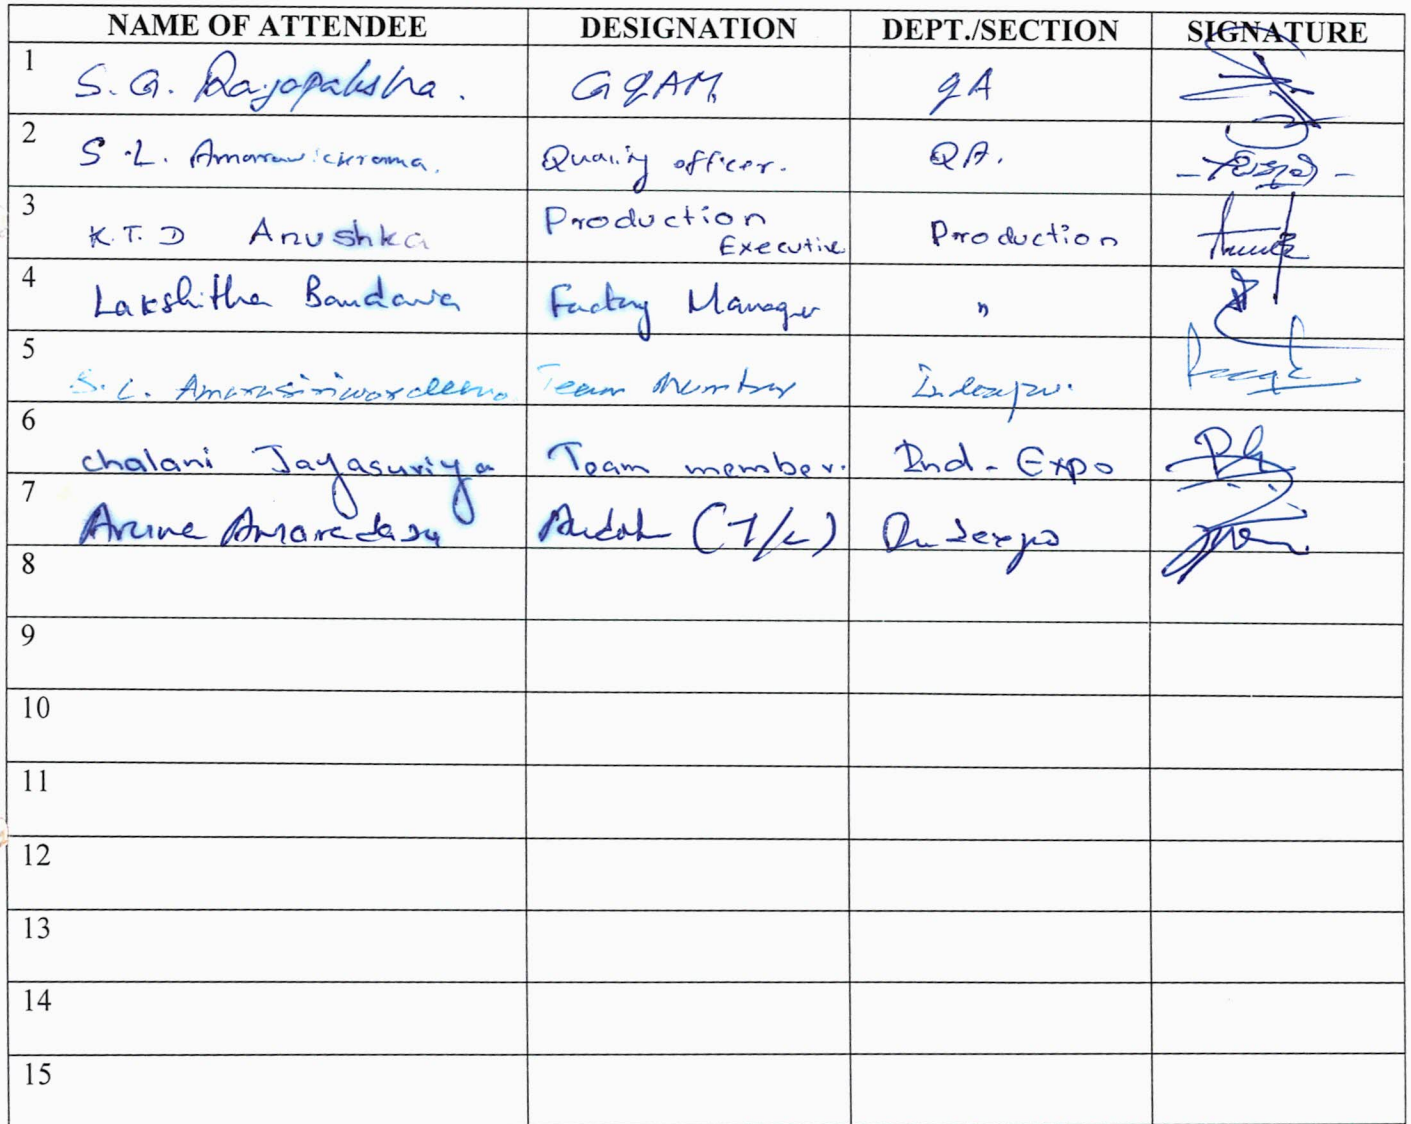 NAME OF ATTENDEE DESIGNATION DEPT./SECTION SIGNATURE
1 S. G. Rajapaksha. GQAM QA
2 S.L. Amarawickrama. Quality officer. QA.
3 K.T.D Anushka Production Executive Production
4 Lakshitha Bandara Factory Manager "
5 S.L. Amarasiriwardena Team Member
6 chalani Jayasuriya Team member. Ind-Expo
7 Amaradasa (T/L) Indexpo
8
9
10
11
12
13
14
15